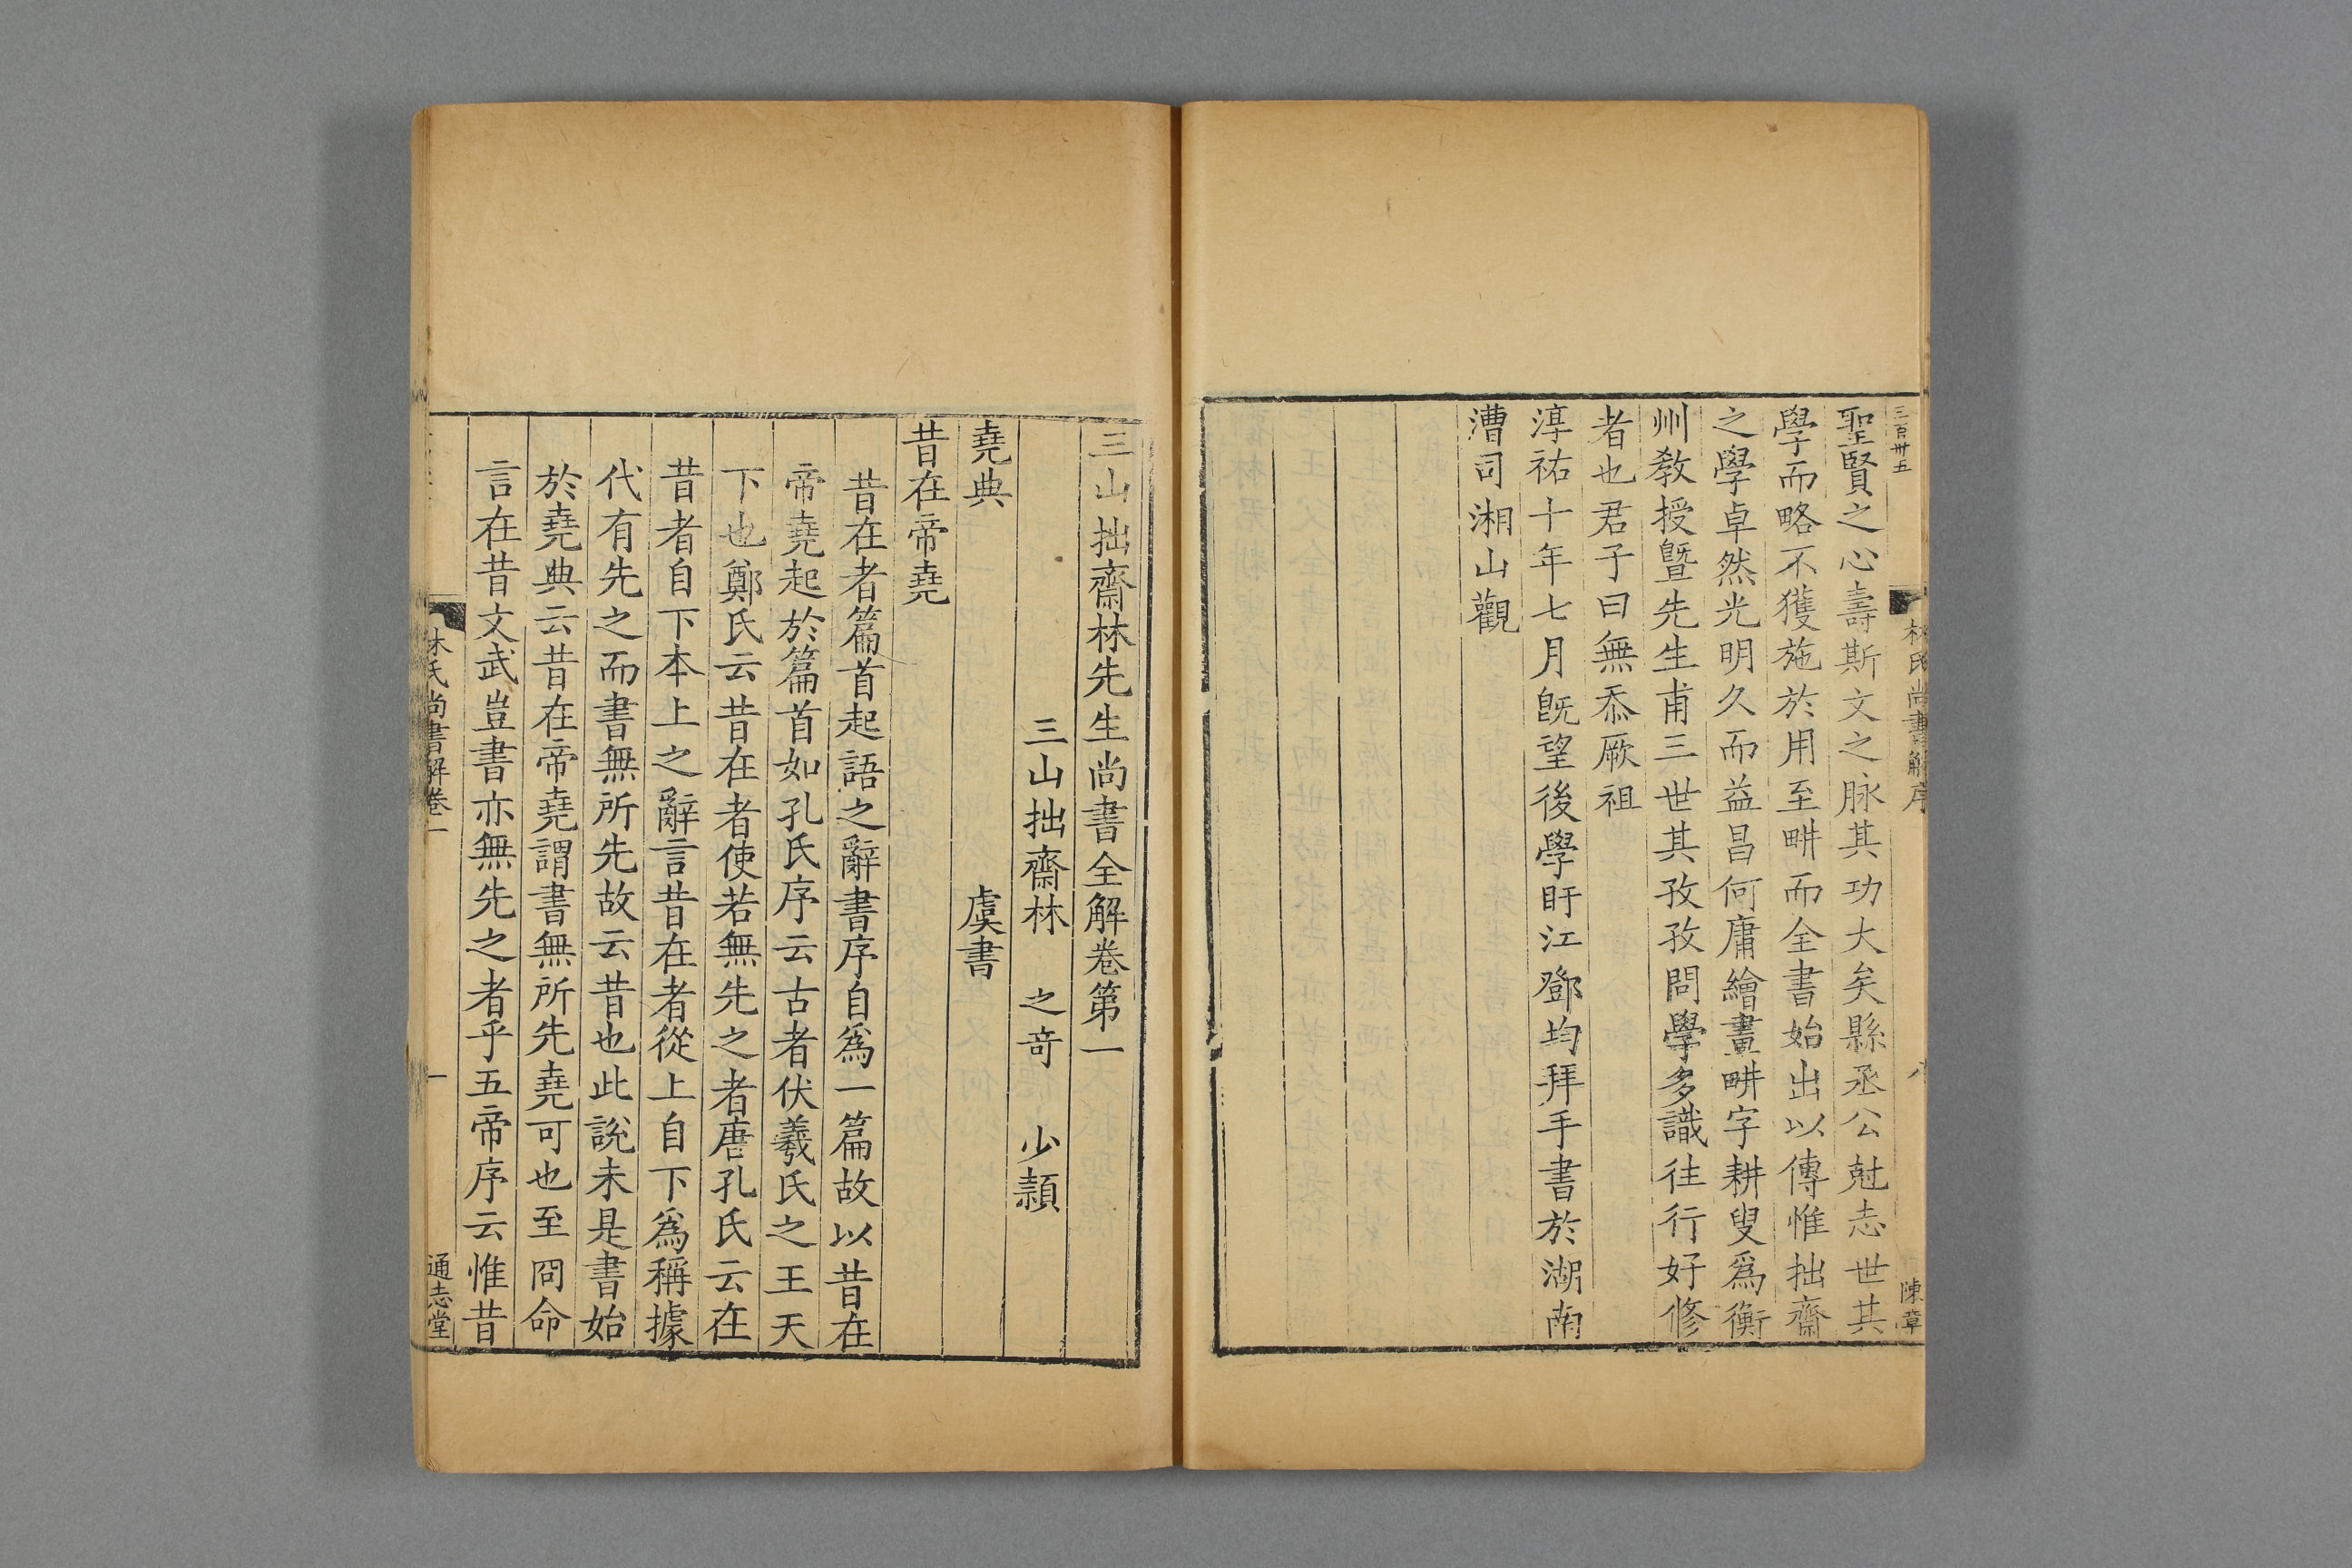 三百卅五
林氏尚書解序
陳章
聖賢之心壽斯文之脉其功大矣縣丞公尅志世其
學而略不獲施於用至畊而全書始出以傳惟拙齋
之學卓然光明久而益昌何庸繪畫畊字耕叟爲衡
州教授曁先生甫三世其孜孜問學多識往行好修
者也君子曰無忝厥祖
淳祐十年七月旣望後學盱江鄧均拜手書於湖南
漕司湘山觀
三山拙齋林先生尚書全解卷第一
三山拙齋林 之奇 少穎
堯典 虞書
昔在帝堯
昔在者篇首起語之辭書序自爲一篇故以昔在
帝堯起於篇首如孔氏序云古者伏羲氏之王天
下也鄭氏云昔在者使若無先之者唐孔氏云在
昔者自下本上之辭言昔在者從上自下爲稱據
代有先之而書無所先故云昔也此說未是書始
於堯典云昔在帝堯謂書無所先堯可也至冏命
言在昔文武豈書亦無先之者乎五帝序云惟昔
林氏尚書解卷一
一
通志堂